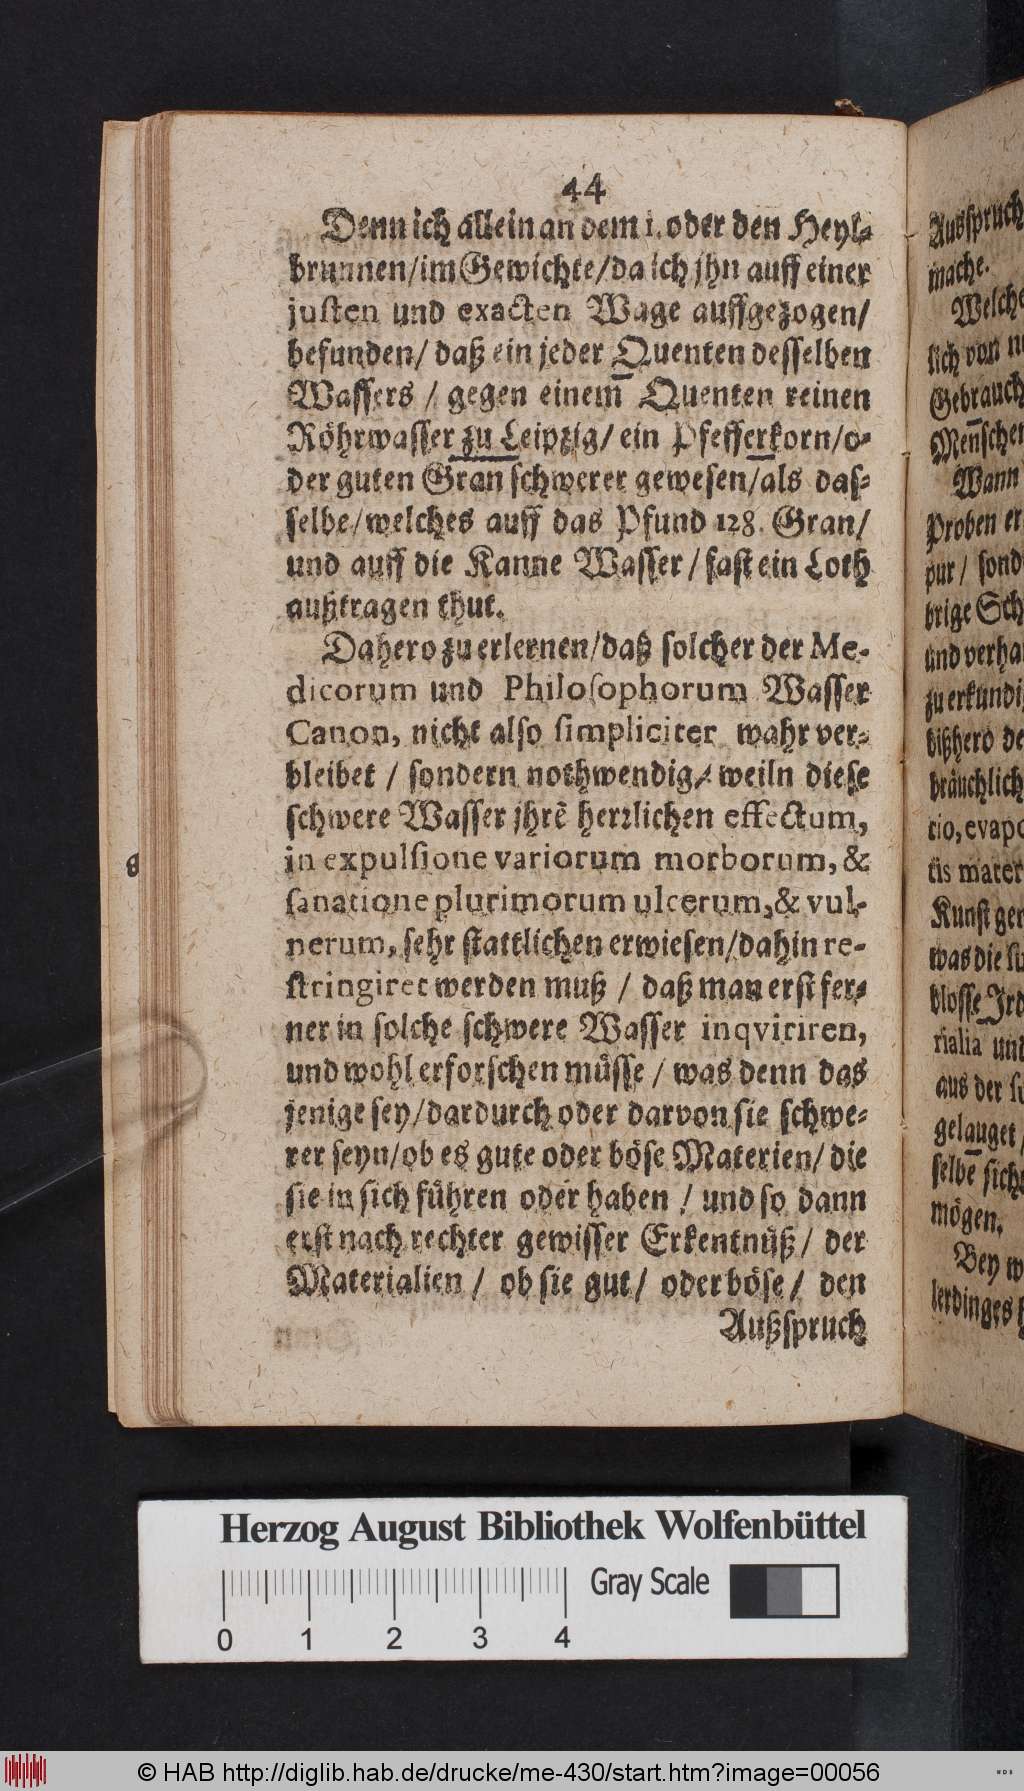 44
Denn ich allein an dem 1. oder den Heyl-
brunnen/im Gewichte/da ich jhn auff einer
justen und exacten Wage auffgezogen/
befunden/ daß ein jeder Quenten desselben
Wassers / gegen einem Quenten reinen
Röhrwasser zu Leipzig/ ein Pfefferkorn/o-
der guten Gran schwerer gewesen/als das-
selbe/welches auff das Pfund 128. Gran/
und auff die Kanne Wasser / fast ein Loth
außtragen thut.
Dahero zu erlernen/daß solcher der Me-
dicorum und Philosophorum Wasser
Canon, nicht also simpliciter wahr ver-
bleibet / sondern nothwendig/ weiln diese
schwere Wasser jhrẽ herrlichen effectum,
in expulsione variorum morborum, &
sanatione plurimorum ulcerum, & vul-
nerum, sehr stattlichen erwiesen/dahin re-
stringiret werden muß / daß man erst fer-
ner in solche schwere Wasser inqviriren,
und wohl erforschen müsse / was denn das
jenige sey/dardurch oder darvon sie schwe-
rer seyn/ob es gute oder böse Materien/ die
sie in sich führen oder haben / und so dann
erst nach rechter gewisser Erkentnüß/ der
Materialien / ob sie gut/ oder böse/ den
Außspruch
Ausspruch
mache.
Welche
lich von
Gebrauch
Menschen
Wann
Proben er
pur/ sond
brige Sch
und verha
zu erkundi
bißhero de
bräuchlich
tio, evapo
tis mater
Kunst ger
was die
blosse Jrd
rialia und
aus der
gelauget
selbe sich
mögen.
Bey w
lerdinges
Herzog August Bibliothek Wolfenbüttel
Gray Scale
0 1 2 3 4
© HAB http://diglib.hab.de/drucke/me-430/start.htm?image=00056